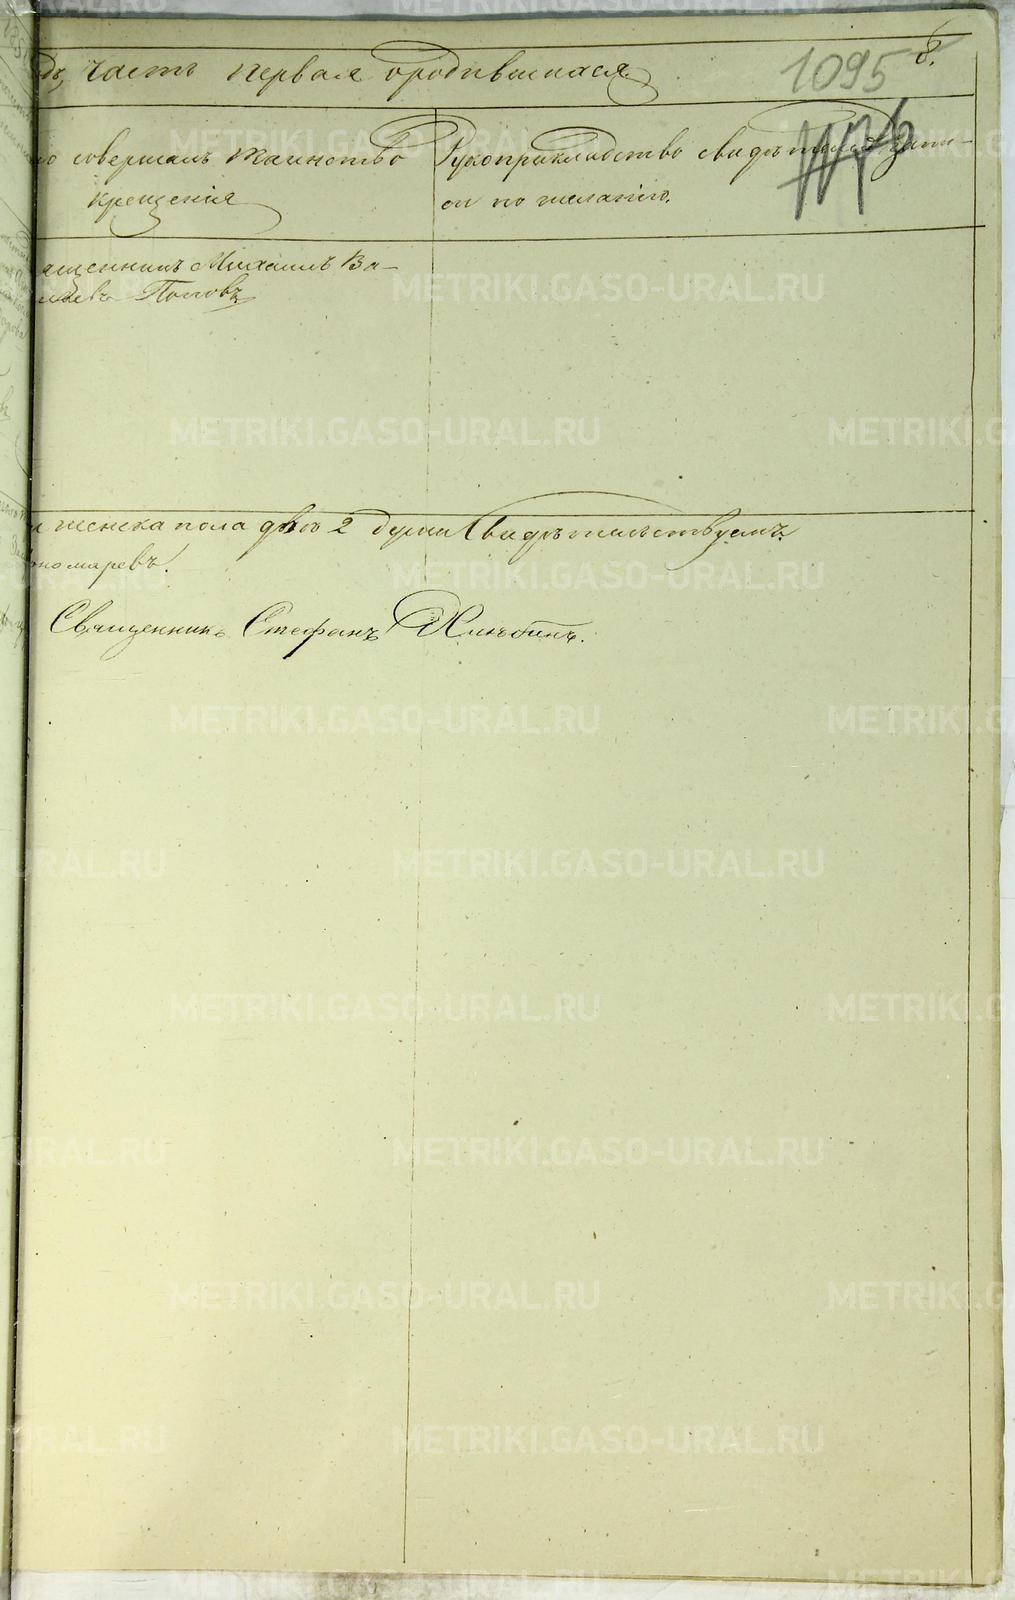 дъ, часть первая о родившихся
1095
8.
то совершалъ таинство
крещенія
Рукоприкладство свидѣтелей запи-
си по желанію.
ященникъ Михаилъ Ва-
ильевъ Поповъ
женска пола двѣ 2 души Свидѣтельствуемъ.
ономаревъ.
Священникъ Стефанъ Хлюбинъ.
METRIKI.GASO-URAL.RU